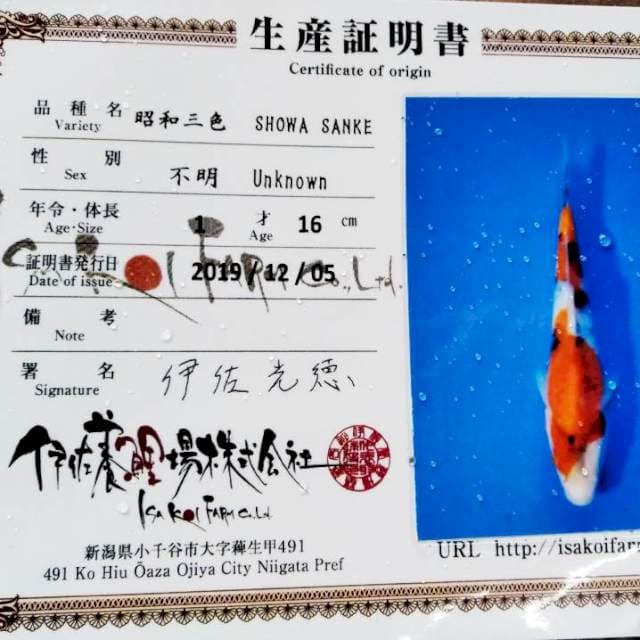 生産証明書
Certificate of origin
品種名 昭和三色 SHOWA SANKE
Variety
性別 不明 Unknown
Sex
年令・体長 1 才 16 cm
Age·Size Age
証明書発行日 2019/12/05
Date of issue
備考
Note
署名 伊佐光徳
Signature
伊佐養鯉場株式会社
ISA KOI FARM Co.,Ltd.
新潟県小千谷市大字薭生甲491
491 Ko Hiu Ōaza Ojiya City Niigata Pref
URL http://isakoifar